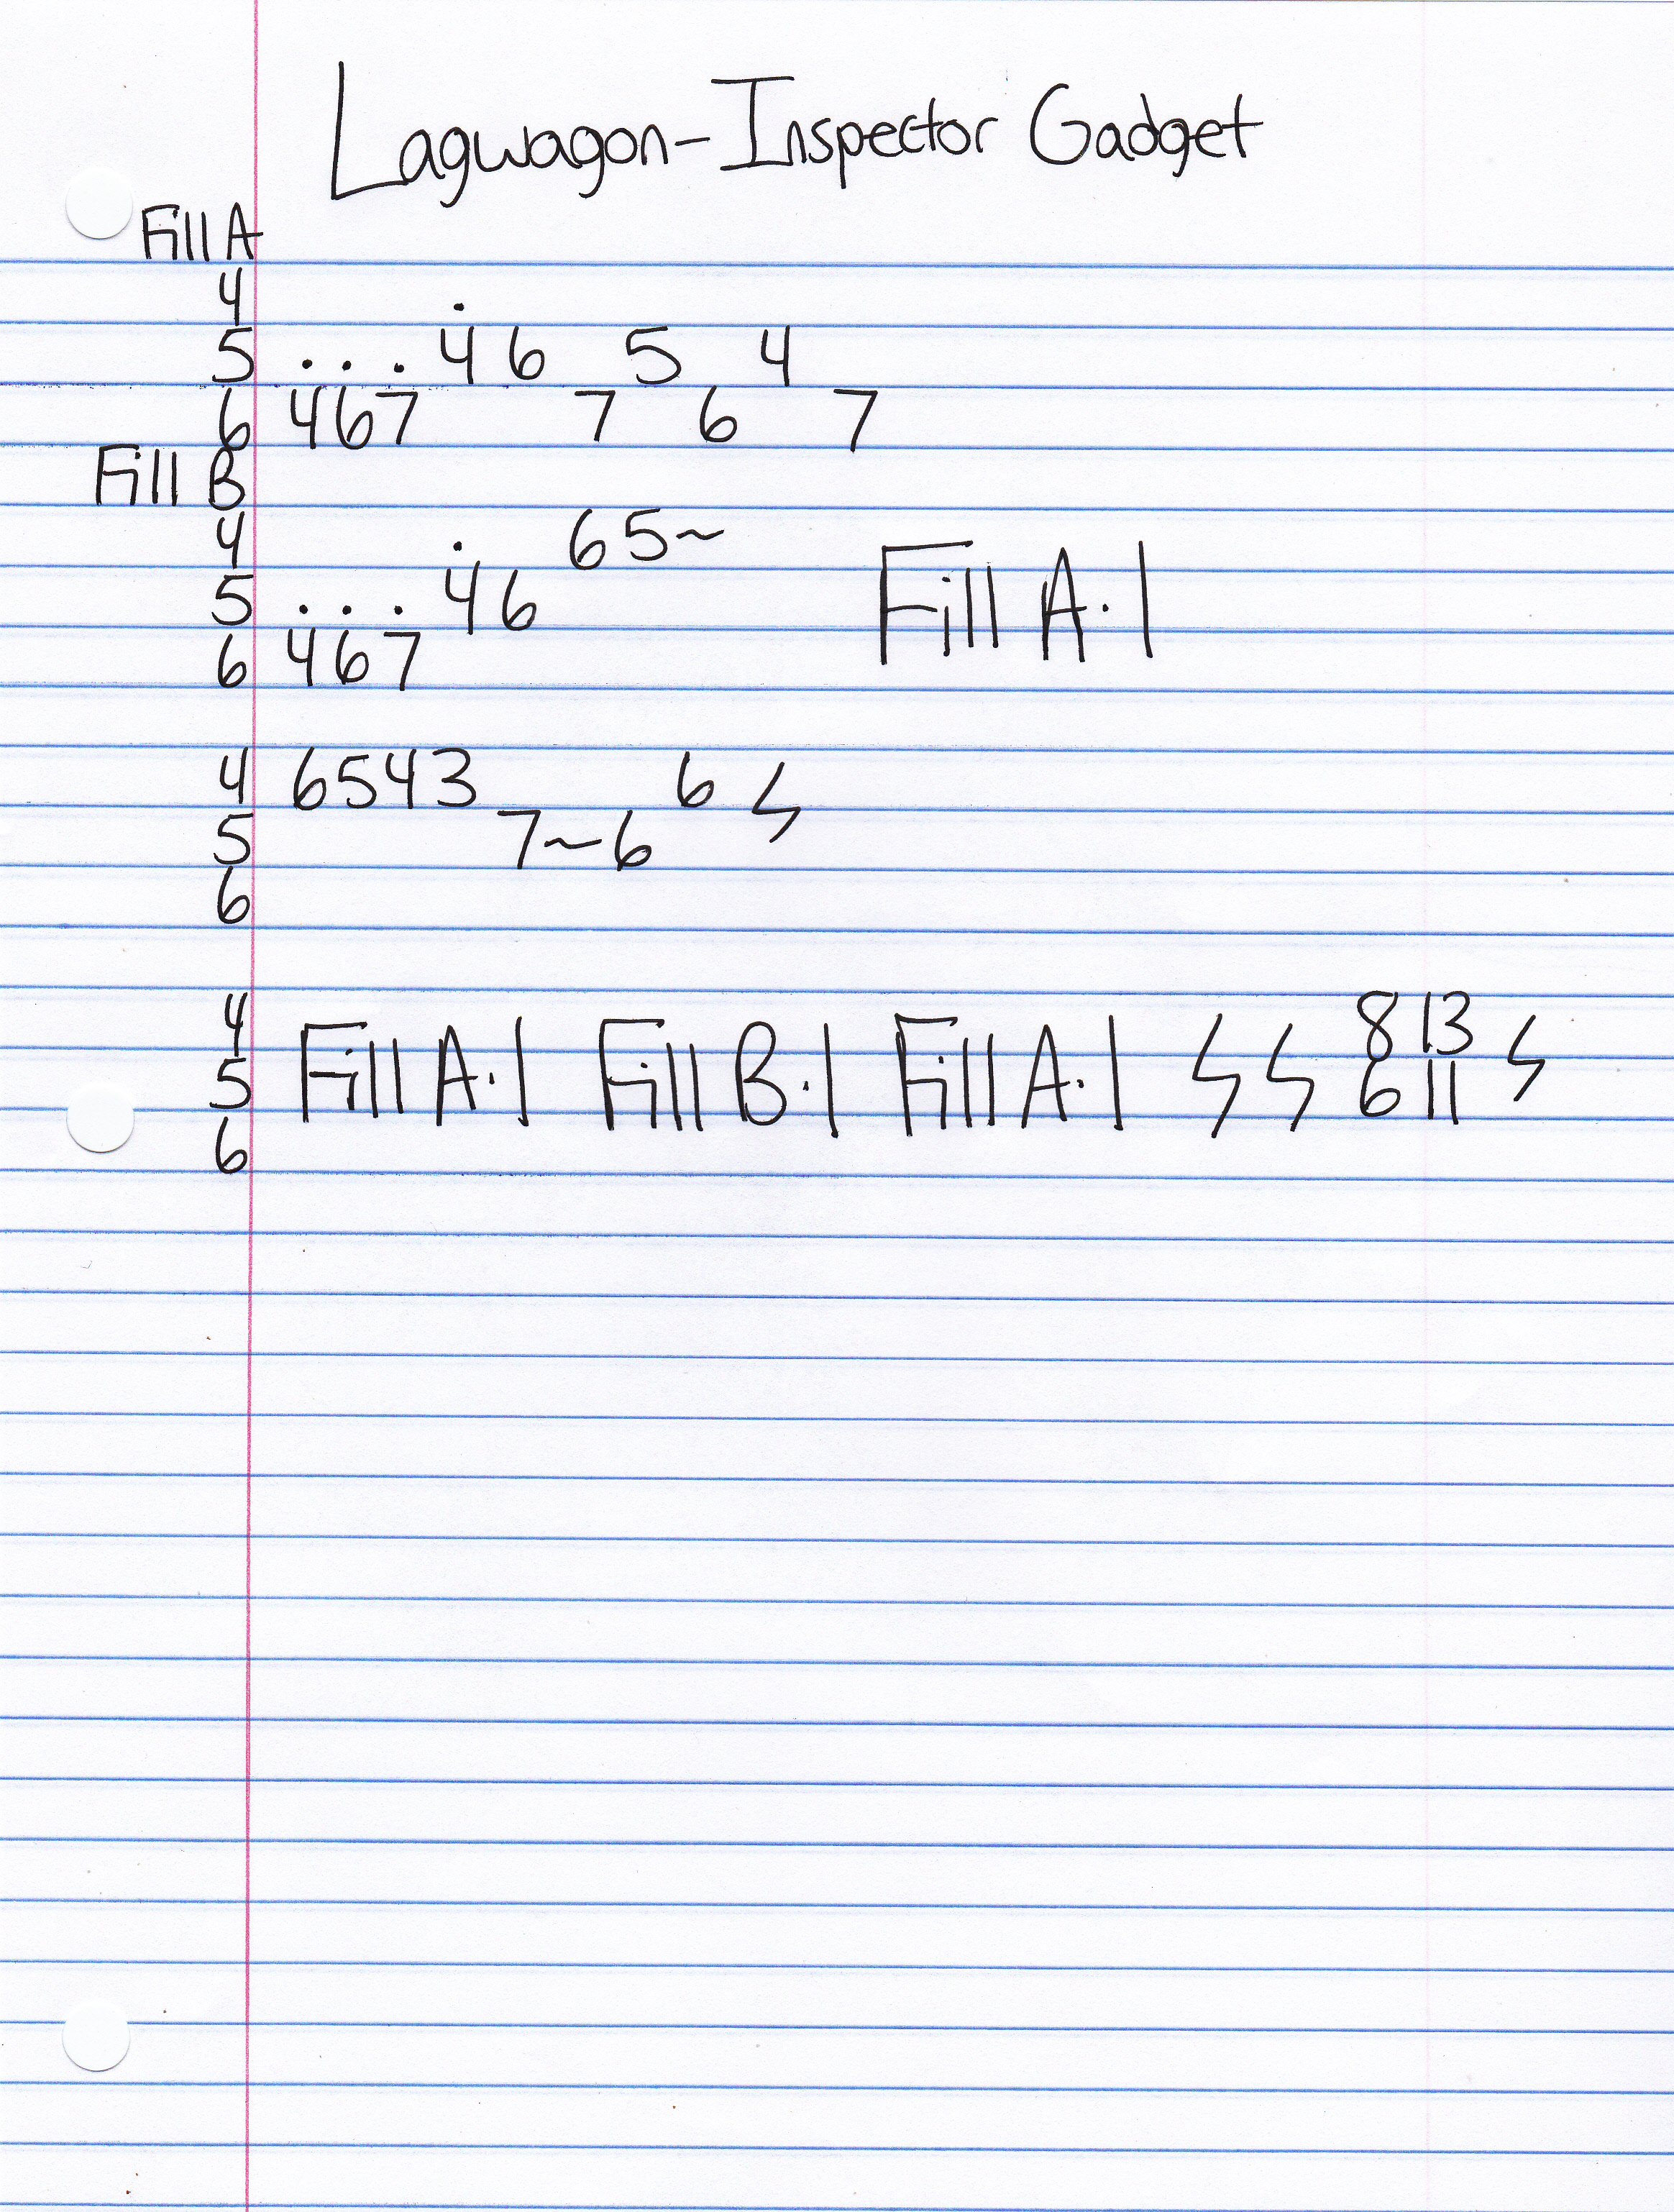 Lagwagon - Inspector Gadget
Fill A
4 .
5 . . . 4 6 5 4
6 4 6 7 7 6 7
Fill B
4 . 6 5 ~
5 . . . 4 6 Fill A·|
6 4 6 7
4 6 5 4 3 6 ϟ
5 7 ~ 6
6
4 8 13
5 Fill A·| Fill B·| Fill A·| ϟ ϟ 6 11 ϟ
6